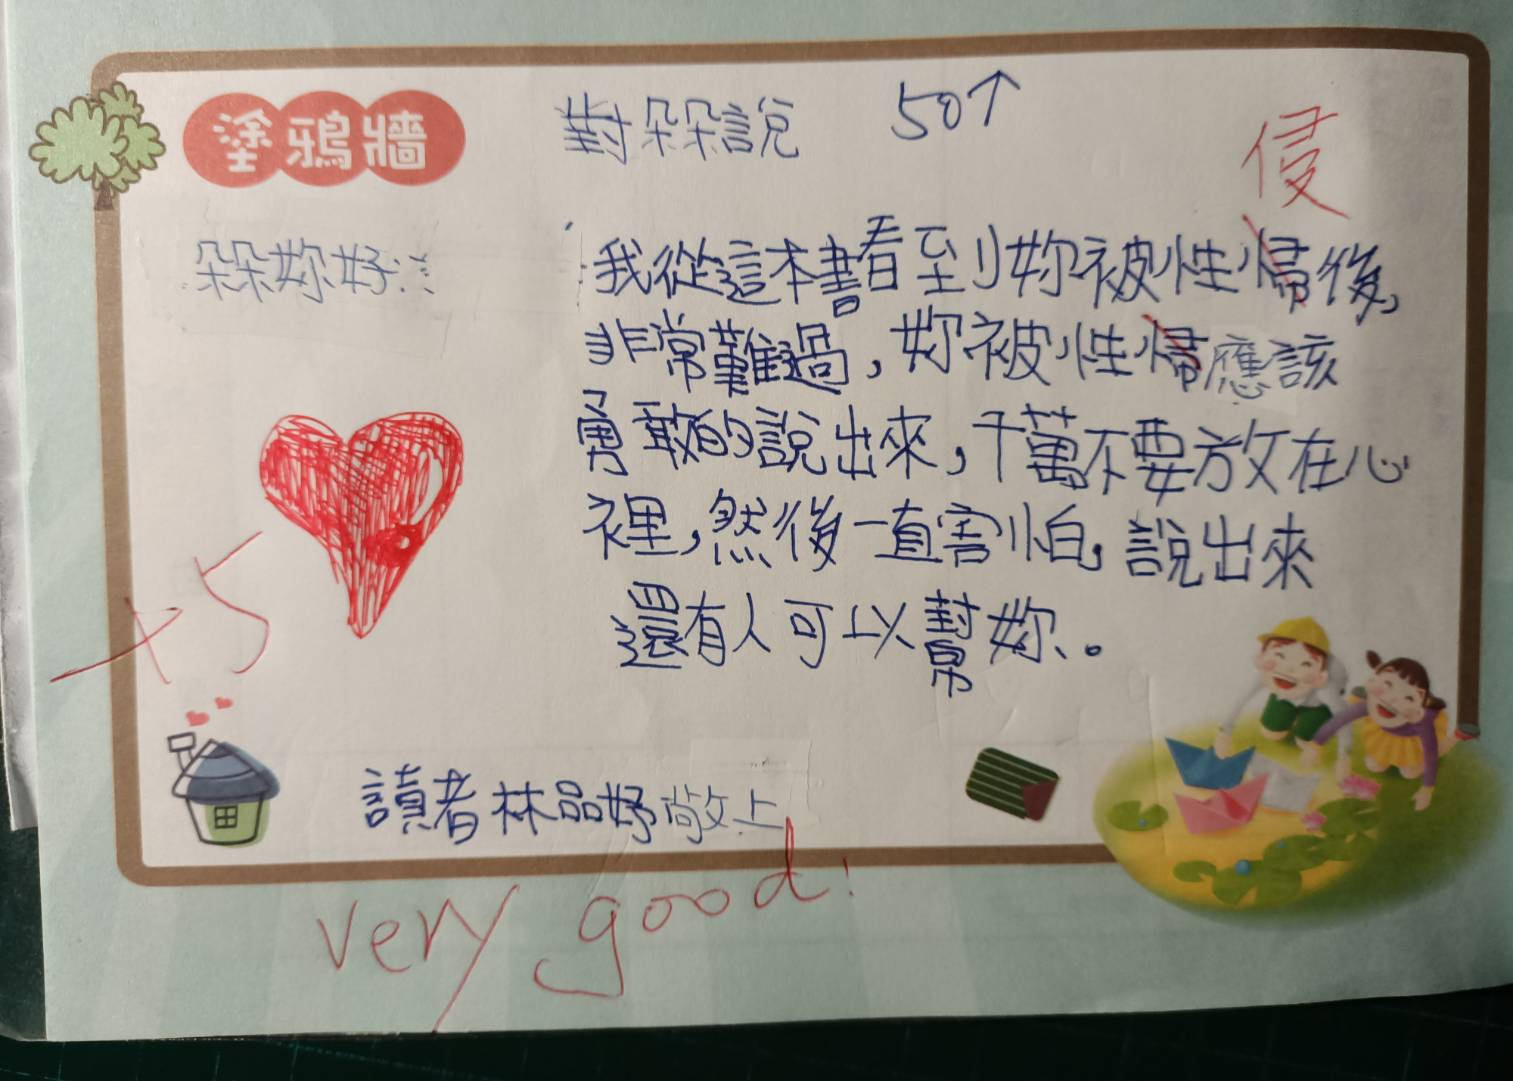 塗鴉牆
對朵朵說 50↑
侵
朵朵妳好:
我從這本書看到妳被性帰後,
非常難過,妳被性帰應該
勇敢的說出來,千萬不要放在心
裡,然後一直害怕,說出來
還有人可以幫妳。
+5
讀者林品妤敬上
very good!